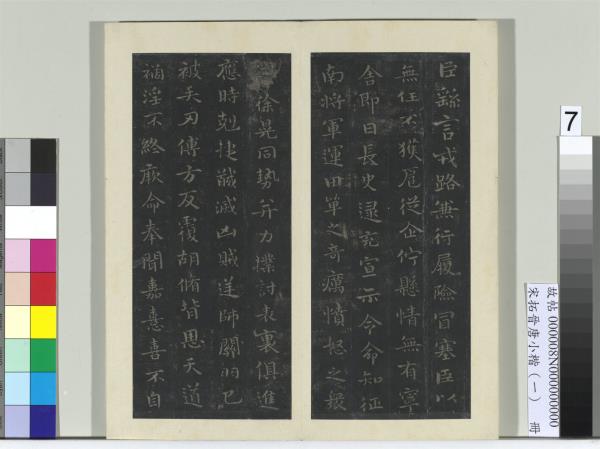 臣繇言戎路兼行履險冒寒臣以
無任不獲扈從企佇懸情無有寧
舍即日長史逯充宣示令命知征
南將軍運田單之奇厲憤怒之衆
徐晃同勢并力撲討表裏俱進
應時剋捷馘滅凶賊逆師關羽已
被矢刃傅方反覆胡脩背恩天道
禍淫不終厥命奉聞嘉憙喜不自
7
故帖 000008N000000000
宋拓晉唐小楷（一） 冊